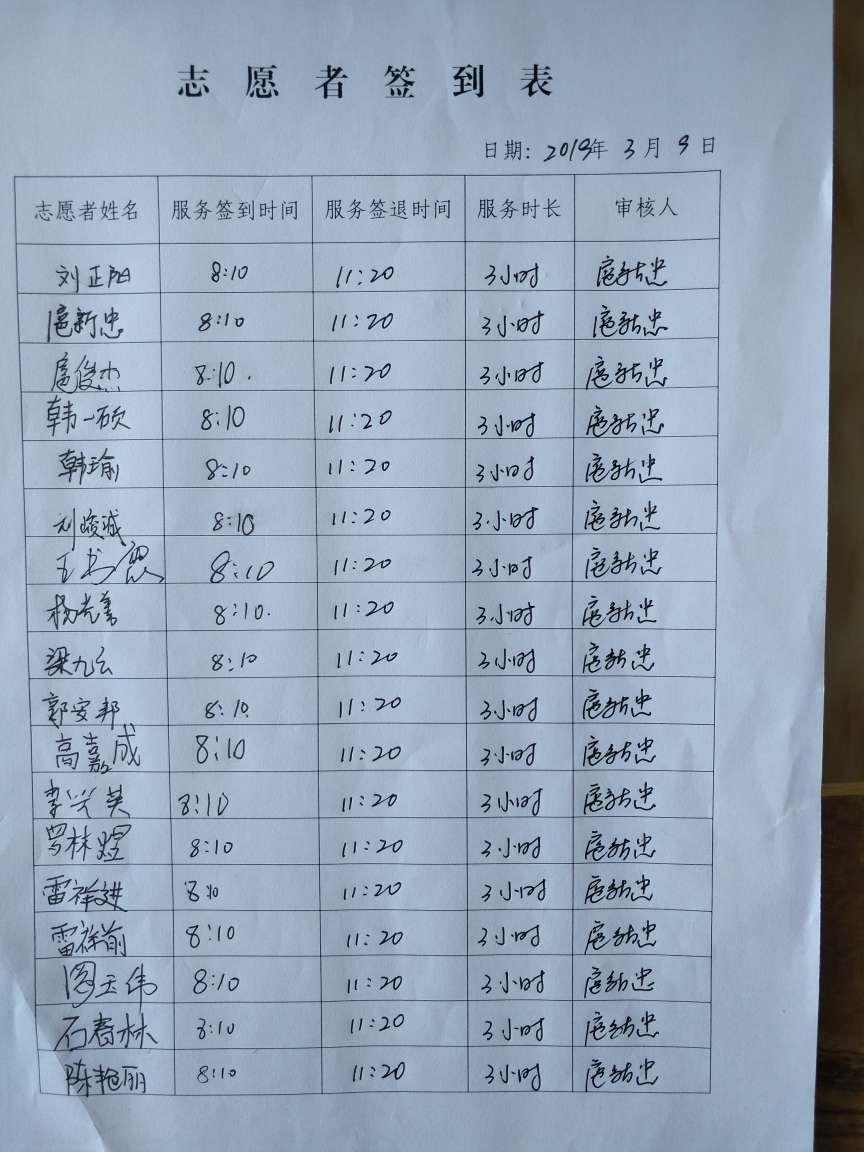 志愿者签到表
日期: 2019年 3月 9日
志愿者姓名 服务签到时间 服务签退时间 服务时长 审核人
刘正阳 8:10 11:20 3小时 扈新忠
扈新忠 8:10 11:20 3小时 扈新忠
扈俊杰 8:10. 11:20 3小时 扈新忠
韩一硕 8:10 11:20 3小时 扈新忠
韩瑜 8:10 11:20 3小时 扈新忠
刘峻诚 8:10 11:20 3小时 扈新忠
王 8:10 11:20 3小时 扈新忠
杨光善 8:10. 11:20 3小时 扈新忠
梁九云 8:10 11:20 3小时 扈新忠
郭安邦 8:10 11:20 3小时 扈新忠
高嘉成 8:10 11:20 3小时 扈新忠
李兴英 8:10 11:20 3小时 扈新忠
罗林煜 8:10 11:20 3小时 扈新忠
雷祥进 8:10 11:20 3小时 扈新忠
雷祥前 8:10 11:20 3小时 扈新忠
玉伟 8:10 11:20 3小时 扈新忠
石春林 8:10 11:20 3小时 扈新忠
陈艳丽 8:10 11:20 3小时 扈新忠